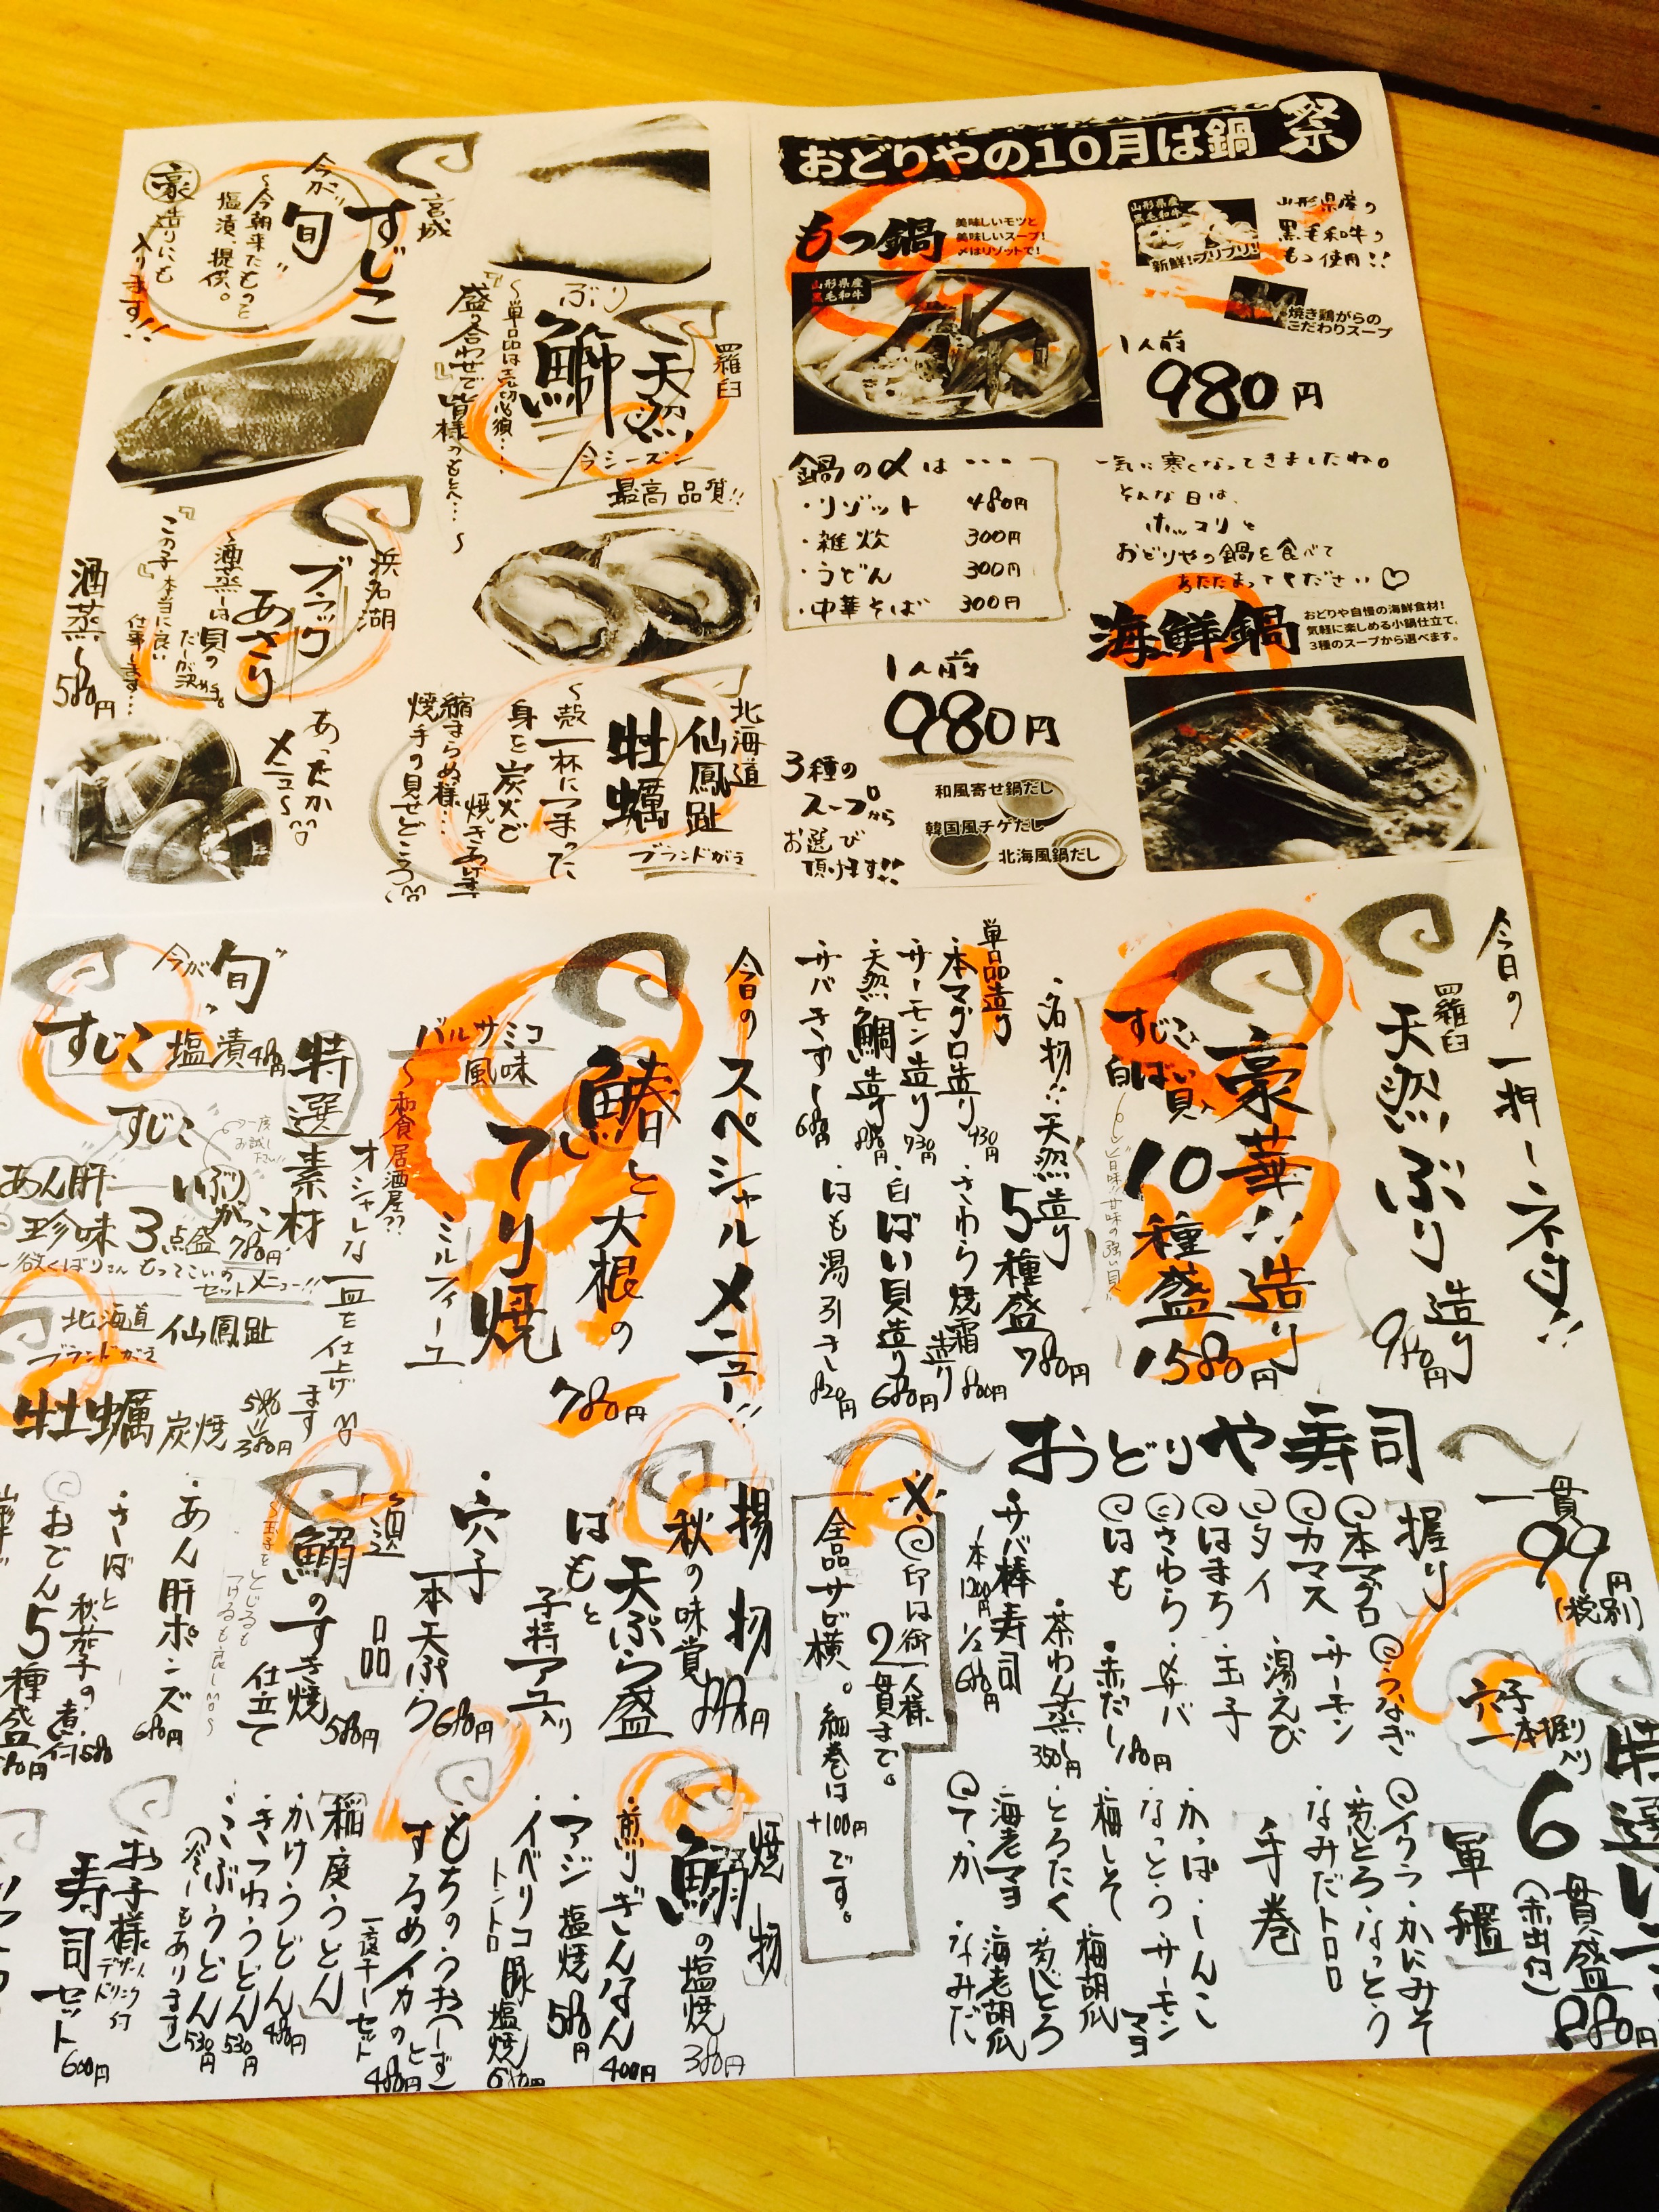 おどりやの10月は鍋祭
もつ鍋
美味しいモツと
美味しいスープ!
〆はリゾットで!
山形県産
黒毛和牛
新鮮!プリプリ!
山形県産の
黒毛和牛の
もつ使用!!
山形県産
黒毛和牛
焼き鶏がらの
こだわりスープ
1人前
980円
鍋の〆は・・・
・リゾット 480円
・雑炊 300円
・うどん 300円
・中華そば 300円
一気に寒くなってきましたね。
そんな日は、
ホッコリと
おどりやの鍋を食べて
あたたまって下ださい♡
海鮮鍋
おどりや自慢の海鮮食材!
気軽に楽しめる小鍋仕立て。
3種のスープから選べます。
1人前
980円
3種の
スープから
お選び
頂けます!!
和風寄せ鍋だし
韓国風チゲだし
北海風鍋だし
宮城
すじこ
今が旬
〜今朝来たもの
塩漬、提供。
豪造りにも
入ります!!
羅臼
天然
ぶり
鰤
今シーズン
最高品質!!
〜単品は売切必須・・・
『盛り合わせで』皆様のもとへ…〜
浜名湖
ブラック
あさり
〜酒蒸しは貝の
だしが決め手。
『この子』本当に良い
仕事します…
酒蒸し580円
あったか
メニュー
北海道
仙鳳趾
牡蠣
ブランドがき
〜殻一杯に1まった
身を炭火で
焼きあげます
縮まらぬ様…
焼手の見せどころ
今日の一押しネタ!!
羅臼
天然ぶり造り
980円
豪華!!造り
10種盛
1580円
すじこ
白ばい貝
旨味!!甘味の強い貝!!
・名物!!天然造り
5種盛780円
単品造り
・本マグロ造り 930円
・サーモン造り 730円
・天然鯛造り
・サバきずし 680円
・さわら焼霜造り 800円
・白ばい貝造り 680円
・はも湯引き 820円
今日のスペシャルメニュー!!
鰆と大根の
てり焼
780円
バルサミコ
風味
ミルフィーユ
〜和食居酒屋??
オシャレな一皿を仕上げます
今が旬
すじこ塩漬480円
特選素材
すじこ
あん肝
いぶりがっこ
一度
お試し
下さい!!
珍味3点盛780円
〜欲くばりさんもってこいの
セットメニュー!!
北海道
仙鳳趾
ブランドがき
牡蠣炭焼
580
380円
おどりや寿司
一貫
99円
(税別)
握り
本マグロ
カマス
タイ
はまち
さわら
はも
うなぎ
サーモン
湯えび
玉子
〆サバ
・サバ棒寿司
一本1200円 1/2 680円
・茶わん蒸し350円
・赤だし180円
※印は御一人様
2貫まで。
全品サビ横。細巻は
+100円です。
穴子
一本握り
入り
6貫盛
(赤出付)
880円
軍艦
イクラ・かにみそ
葱とろ・なっとう
なみだトロロ
手巻
・かっぱ・しんこ
・なっとう・サーモンマヨ
・梅しそ・梅胡瓜
・とろたく・葱とろ
・海老マヨ・海老胡瓜
てっか・なみだ
揚物
秋の味覚
天ぷら盛
はもと
子持アユ入り
・穴子
一本天ぷら680円
一品
鰯のすき焼
仕立て
580円
〜玉子をとじるも
つけるも良し
・あん肝ポンズ680円
・さばと
秋茄子の煮付580
おでん5種盛
焼物
鰯の塩焼380円
・煎りぎんなん400円
・アジ塩焼580円
・イベリコ豚
トントロ
塩焼
もちのうお
するめイカの
一夜干しセット
480円
稲庭うどん
・かけうどん480円
・きつねうどん530円
・こぶうどん530円
(冷しもあります)
お子様
デザート
ドリンク付
寿司セット
600円